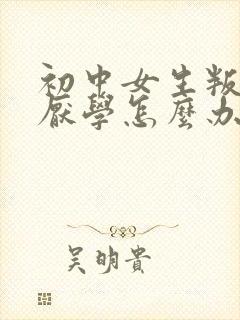 初中女生叛
厭學怎麼办
吴明貴